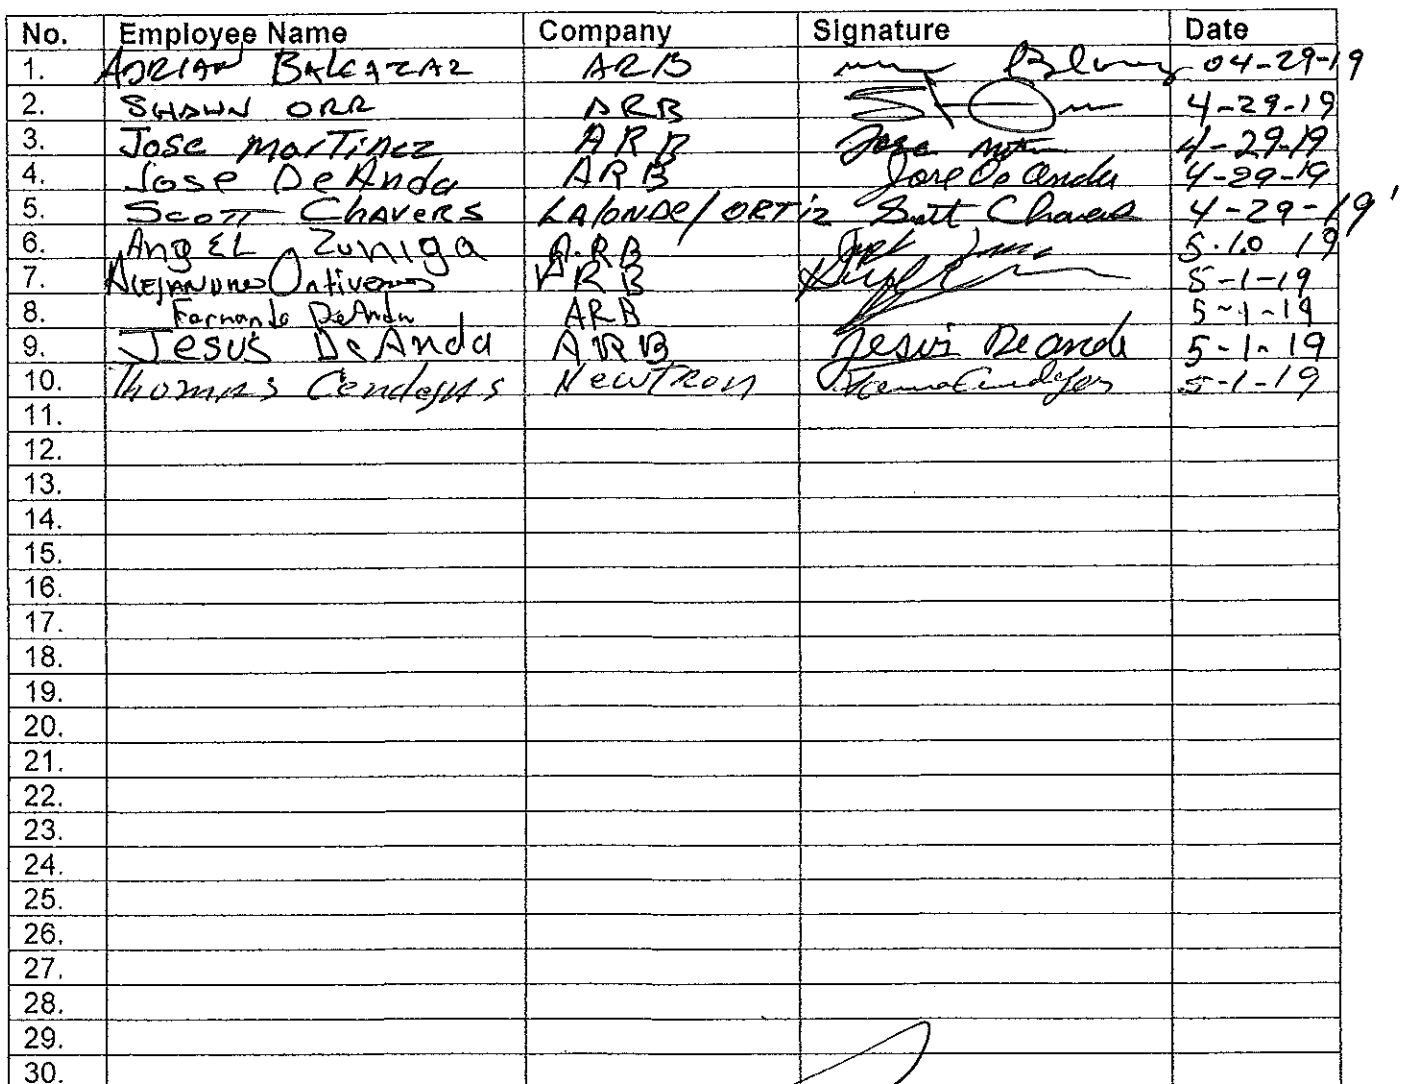 No. Employee Name Company Signature Date
1. ADRIAN BALCAZAR ARB 04-29-19
2. SHAWN ORR ARB 4-29-19
3. Jose marTinez ARB Jose 4-29-19
4. Jose DeAnda ARB Jose De Anda 4-29-19
5. Scott Chavers LAlonDe/ORTiz Scott Chavers 4-29-19
6. AngEL Zuniga A.R.B 5.10 19
7. Alejandro Ontiveros ARB 5-1-19
8. Fernando DeAnda ARB 5-1-19
9. Jesus DeAnda ARB Jesus De anda 5-1-19
10. Thomas Cendejas Newtron 5-1-19
11.
12.
13.
14.
15.
16.
17.
18.
19.
20.
21.
22.
23.
24.
25.
26.
27.
28.
29.
30.